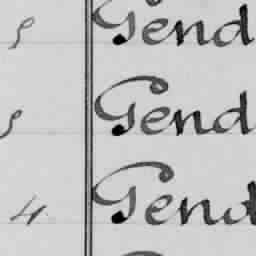 Gend
Gend
4. Gend